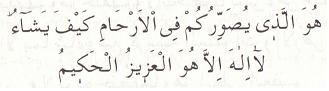 هُوَ الَّذٖى يُصَوِّرُكُمْ فِى الْاَرْحَامِ كَيْفَ يَشَٓاءُؕ
لَٓا اِلٰهَ اِلَّا هُوَ الْعَزٖيزُ الْحَكٖيمُ